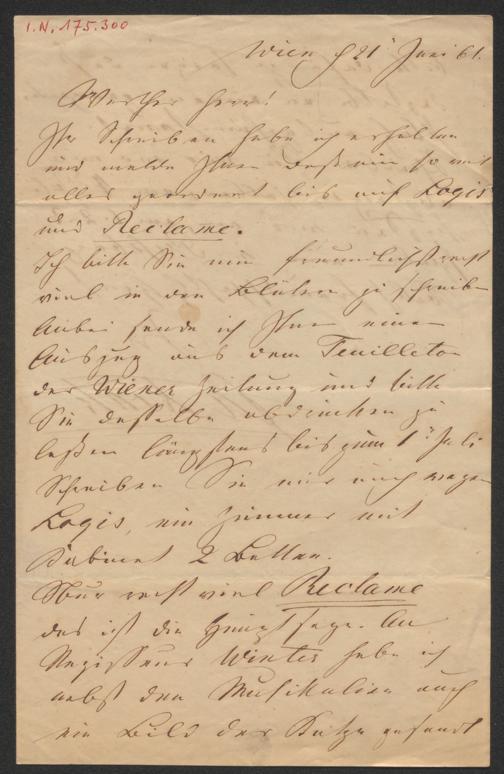 I.N. 175.300
Wien d 21 Juni 61.
Werther Herr!
Ihr Schreiben habe ich erhalten
und melde Ihnen daß nun so mit
alles geordnet bis auf Logis
und Reclame.
Ich bitte Sie nun freundlichst recht
viel in den Blätern zu schreiben
Anbei sende ich Ihnen einen
Auszug aus dem Feuilleton
der Wiener Zeitung und bitte
Sie dasselbe abdrucken zu
laßen längstens bis zum 1ten Juli
Schreiben Sie mir auch wegen
Logis, ein Zimmer mit
Kabinet 2 Betten.
Nur recht viel Reclame
das ist die Hauptsage. An
Regisseur Winter habe ich
nebst den Musikalien auch
ein Bild der Katze gesandt